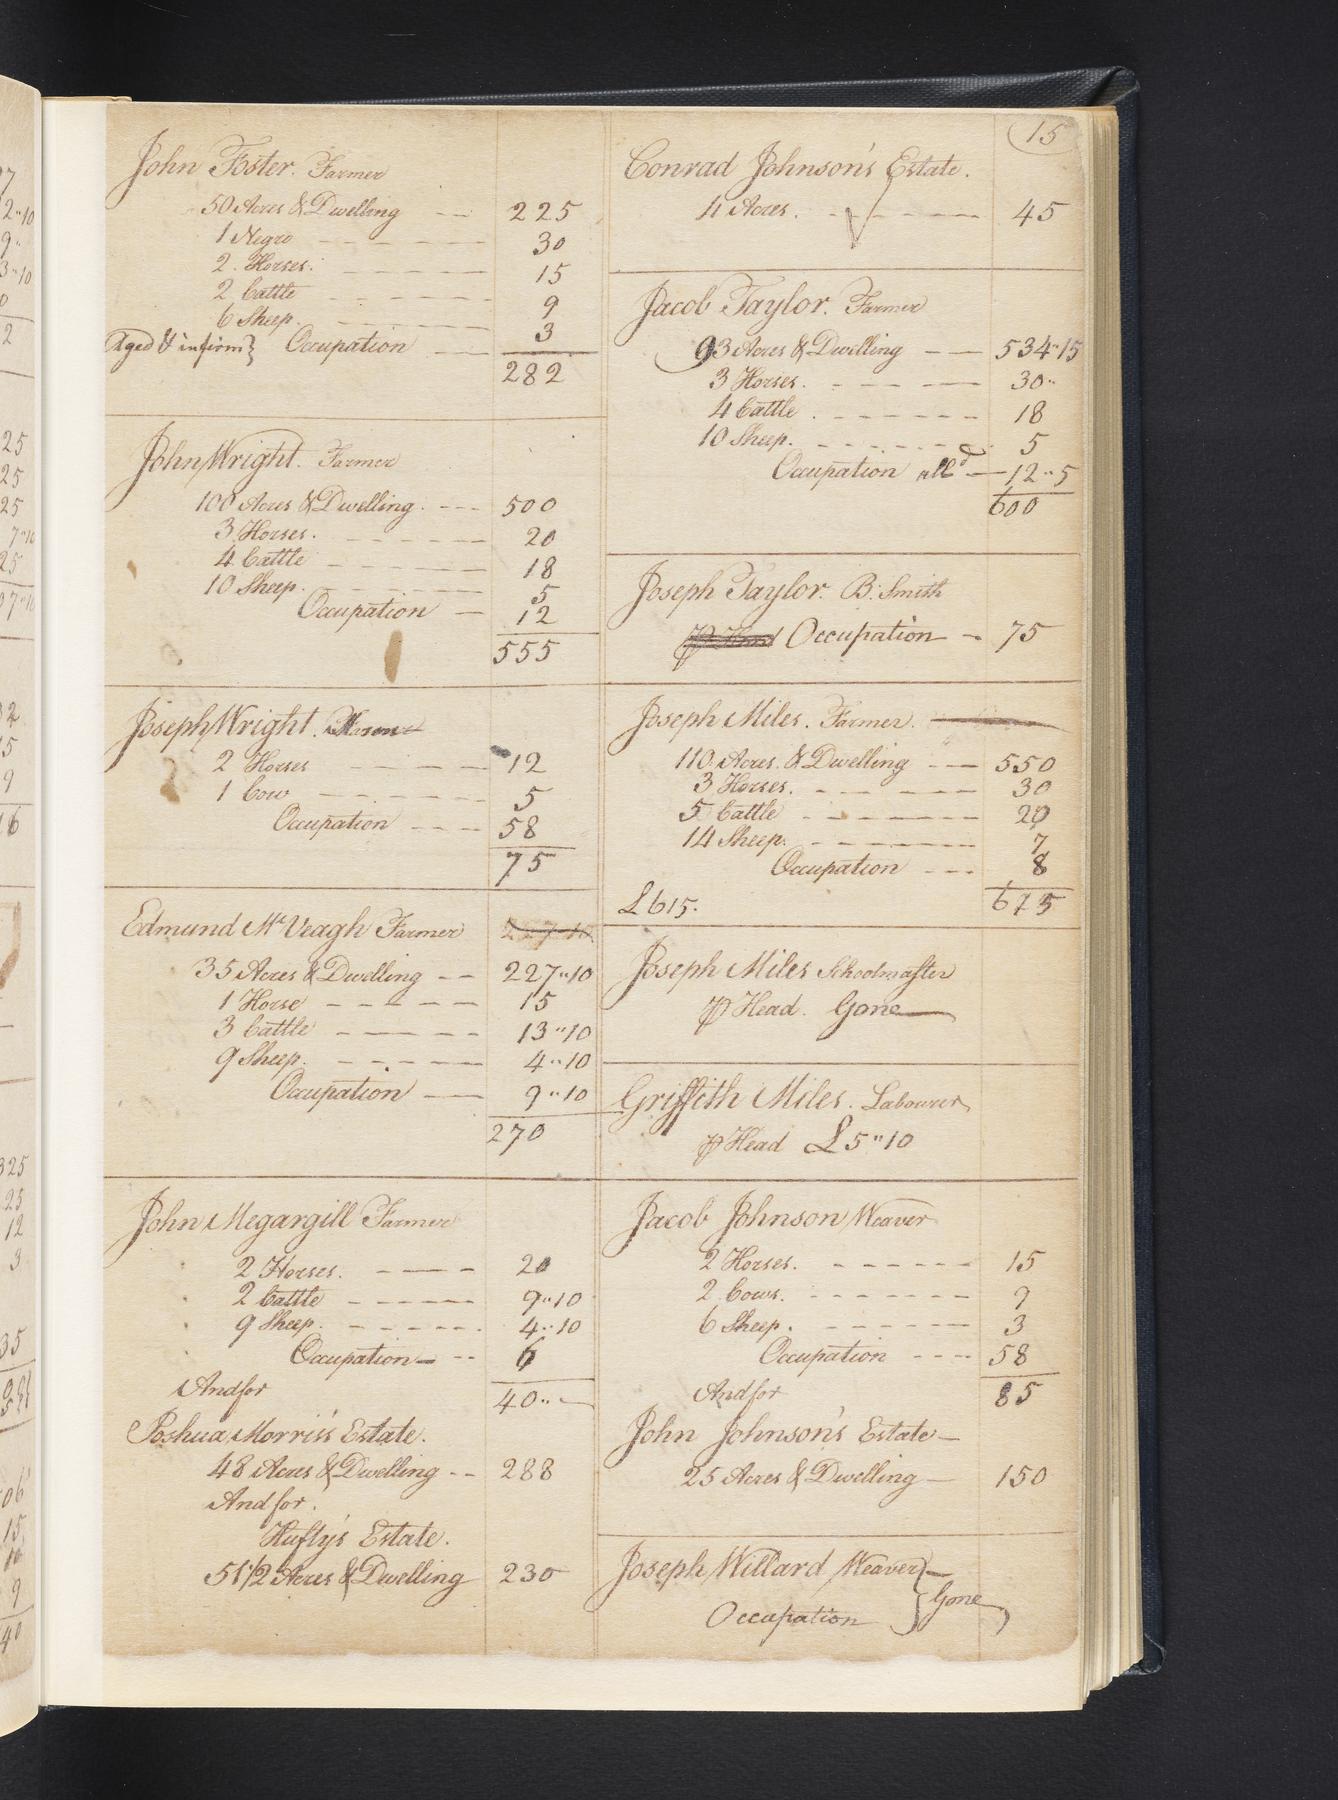 15
John Foster. Farmer
50 Acres & Dwelling 225
1 Negro 30
2. Horses. 15
2 Cattle 9
6 Sheep. 3
Aged & infirm} Occupation
282
John Wright. Farmer
100 Acres & Dwelling. 500
3 Horses. 20
4 Cattle 18
10 Sheep. 5
Occupation 12
555
Joseph Wright.
2 Horses 12
1 Cow 5
Occupation 58
75
Edmund McVeagh Farmer 227-10
35 Acres & Dwelling 227"10
1 Horse 15
3 Cattle 13"10
9 Sheep. 4"10
Occupation 9"10
270
John Megargill Farmer
2 Horses. 20
2 Cattle 9"10
9 Sheep. 4"10
Occupation 6
And for 40"
Joshua Morris's Estate.
48 Acres & Dwelling 288
And for.
Hufty's Estate.
51 1/2 Acres & Dwelling 230
Conrad Johnson's Estate.
4 Acres. 45
Jacob Taylor. Farmer
93 Acres & Dwelling 534"15
3 Horses. 30"
4 Cattle. 18
10 Sheep. 5
Occupation alld 12"5
600
Joseph Taylor. B. Smith
Occupation 75
Joseph Miles. Farmer.
110 Acres. & Dwelling 550
3 Horses. 30
5 Cattle 20
14 Sheep. 7
Occupation 8
£615. 675
Joseph Miles Schoolmaster
P Head. Gone
Griffith Miles. Labourer
P Head £5"10
Jacob Johnson Weaver
2 Horses. 15
2 Cows. 9
6 Sheep. 3
Occupation 58
And for 85
John Johnson's Estate
25 Acres & Dwelling 150
Joseph Willard Weaver
Occupation } Gone